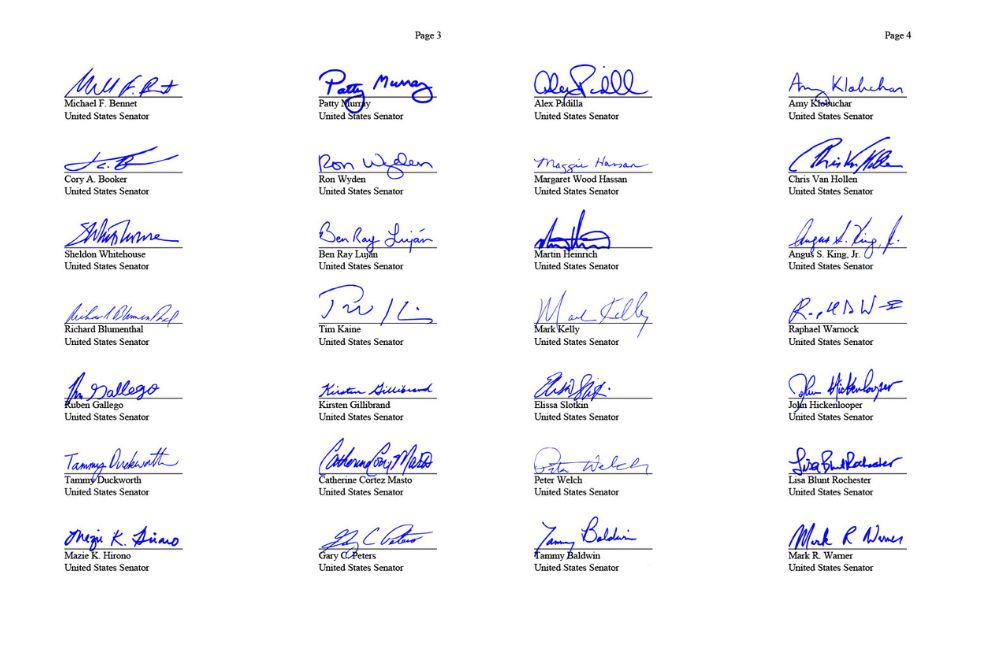 Page 3
Patty Murray
Michael F. Bennet
Patty Murray
United States Senator
United States Senator
Ron Wyden
Cory A. Booker
Ron Wyden
United States Senator
United States Senator
Ben Ray Luján
Sheldon Whitehouse
Ben Ray Luján
United States Senator
United States Senator
Richard Blumenthal
Richard Blumenthal
Tim Kaine
United States Senator
United States Senator
Gallego
Kirsten Gillibrand
Ruben Gallego
Kirsten Gillibrand
United States Senator
United States Senator
Tammy Duckworth
Catherine Cortez Masto
Tammy Duckworth
Catherine Cortez Masto
United States Senator
United States Senator
Mazie K. Hirono
Mazie K. Hirono
Gary C. Peters
United States Senator
United States Senator
Page 4
Alex Padilla
Amy Klobuchar
Alex Padilla
Amy Klobuchar
United States Senator
United States Senator
Maggie Hassan
Margaret Wood Hassan
Chris Van Hollen
United States Senator
United States Senator
Angus S. King, Jr.
Martin Heinrich
Angus S. King, Jr.
United States Senator
United States Senator
Mark Kelly
Mark Kelly
Raphael Warnock
United States Senator
United States Senator
John Hickenlooper
Elissa Slotkin
John Hickenlooper
United States Senator
United States Senator
Peter Welch
Lisa Blunt Rochester
Peter Welch
Lisa Blunt Rochester
United States Senator
United States Senator
Tammy Baldwin
Mark R Warner
Tammy Baldwin
Mark R. Warner
United States Senator
United States Senator